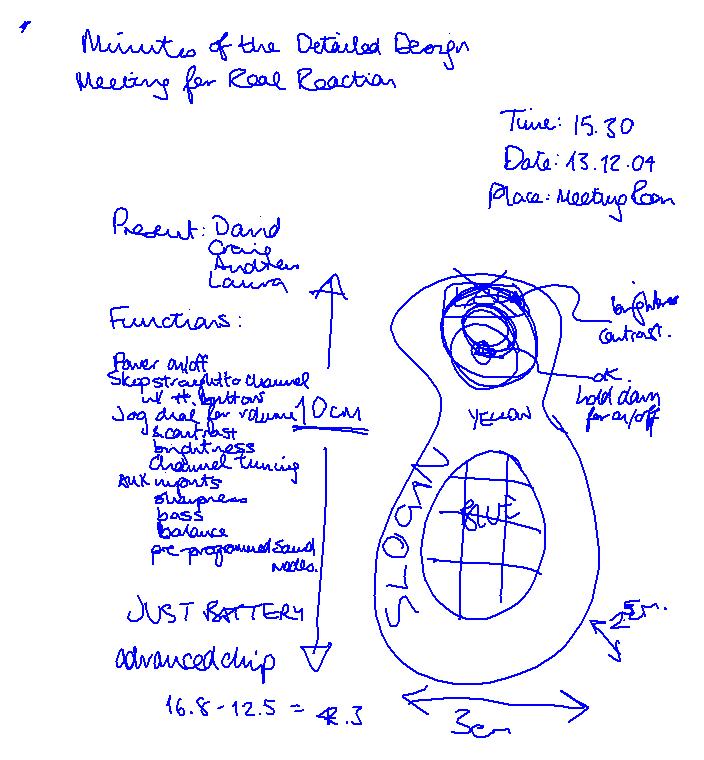 Minutes of the Detailed Design
Meeting for Real Reaction
Time: 15.30
Date: 13.12.04
Place: Meeting Room
Present: David
Craig
Andrew
Laura
Functions:
Power on/off
Skip straight to channel
w/ ++. buttons
Jog dial for volume
& contrast
brightness
channel tuning
AUX inputs
sharpness
bass
balance
pre-programmed sound
modes.
JUST BATTERY
advanced chip
16.8 - 12.5 = 4.3
10cm
brightness
contrast.
OK.
hold down
for on/off
YELLOW
SLOGAN
BLUE
3cm